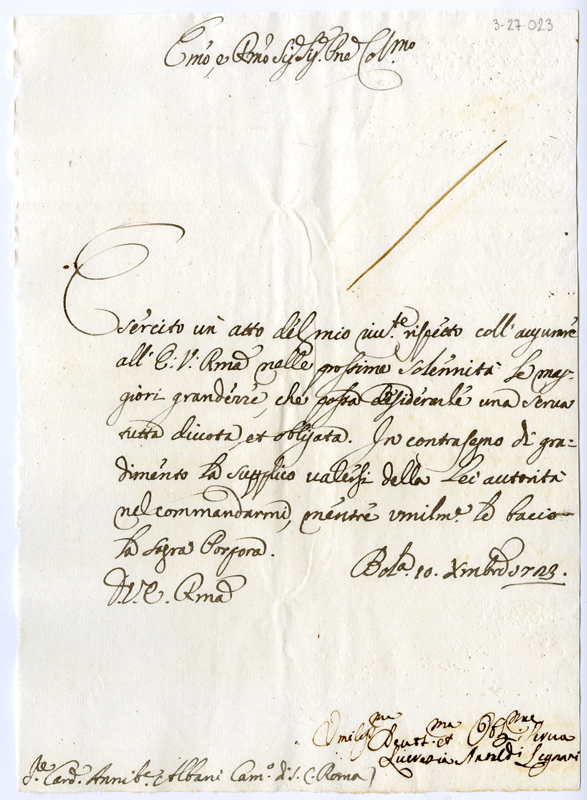 3-27-023
Emo, e Rmo Sig. Sig. Pne Colmo
Esercito un' atto del mio riv.te rispetto coll' augurare
all' E: V: Rma nelle prossime Solennità le mag-
giori grandezze, che possa desiderarle una Serva
tutta divota et obligata. In contrasegno di gra-
dimento la supplico valersi della Lei autorità
nel commandarmi, mentre vmilm.e le bacio
la Sagra Porpora.
Bola. 10. Xmbre 1723.
D. V. E. Rma
Vmiliss.ma Deuot.ma et Obb.ma Serua
Lucrezia Legnani
Card. Annib.e Albani Cam.o di S. C. Roma